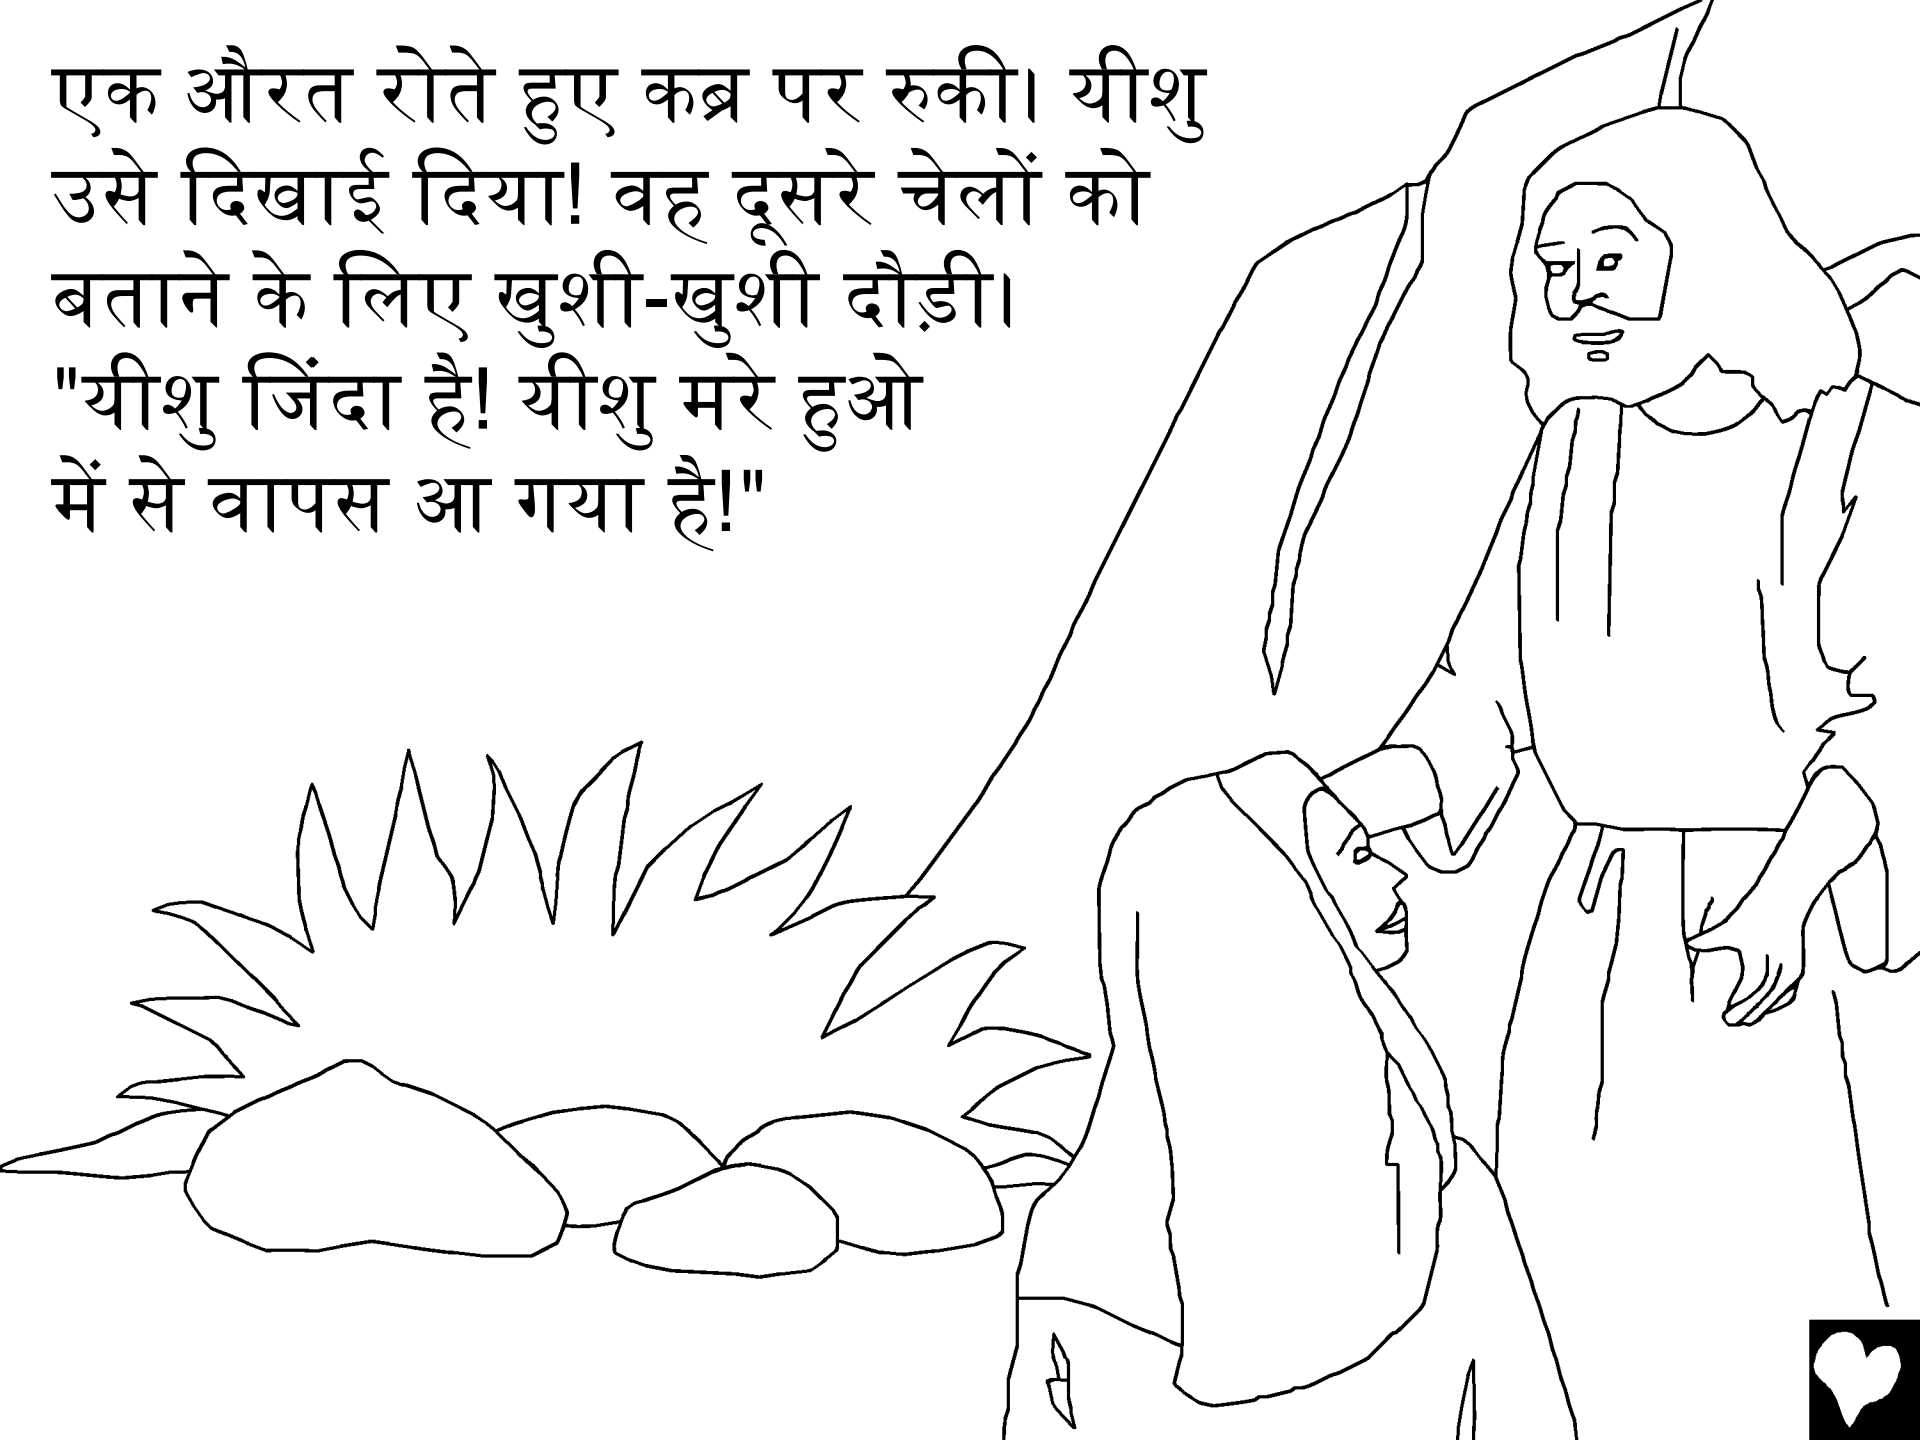 एक औरत रोते हुए कब्र पर रुकी। यीशु
उसे दिखाई दिया! वह दूसरे चेलों को
बताने के लिए खुशी-खुशी दौड़ी।
"यीशु जिंदा है! यीशु मरे हुओ
में से वापस आ गया है!"